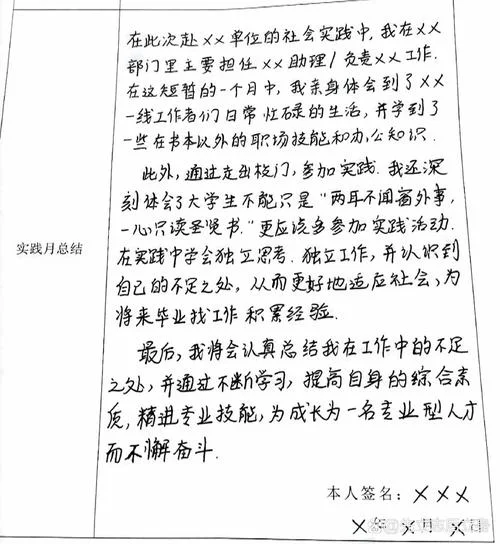 在此次赴××单位的社会实践中,我在××
部门里主要担任××助理/负责××工作.
在这短暂的一个月中,我亲身体会到了××
一线工作者们日常忙碌的生活,并学到了
一些在书本以外的职场技能和办公知识.
此外,通过走出校门,参加实践.我还深
刻体会了大学生不能只是"两耳不闻窗外事,
一心只读圣贤书."更应该多参加实践活动.
在实践中学会独立思考.独立工作,并认识到
实践月总结
自己的不足之处,从而更好地适应社会、为
将来毕业找工作积累经验.
最后,我将会认真总结我在工作中的不足
之处,并通过不断学习,提高自身的综合素
质,精进专业技能,为成长为一名专业型人才
而不懈奋斗.
本人签名:×××
×年×月×日